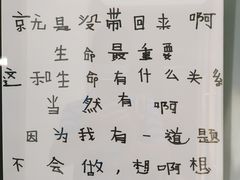 京尤是没带回来 啊
生命最重要
这和生命有什么关系
当然有啊
因为我有一道题
不会做，想啊想